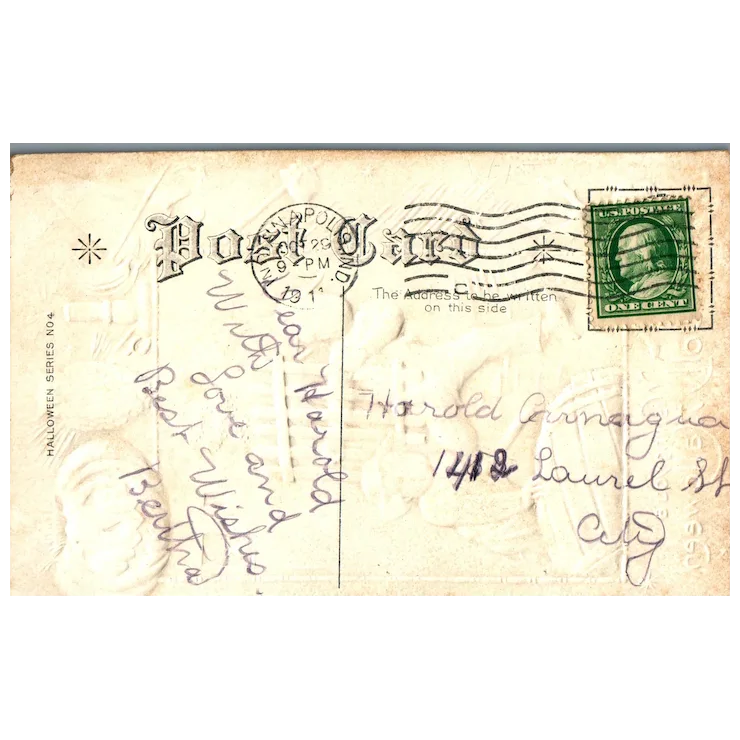 Post Card
INDIANAPOLIS, IND.
OCT 29
9 - PM
1911
U.S. POSTAGE
ONE CENT
The Address to be written
on this side
HALLOWEEN SERIES NO4
Dear Harold
With
Love and
Best Wishes
Bertha
Harold
1412 Laurel St
City